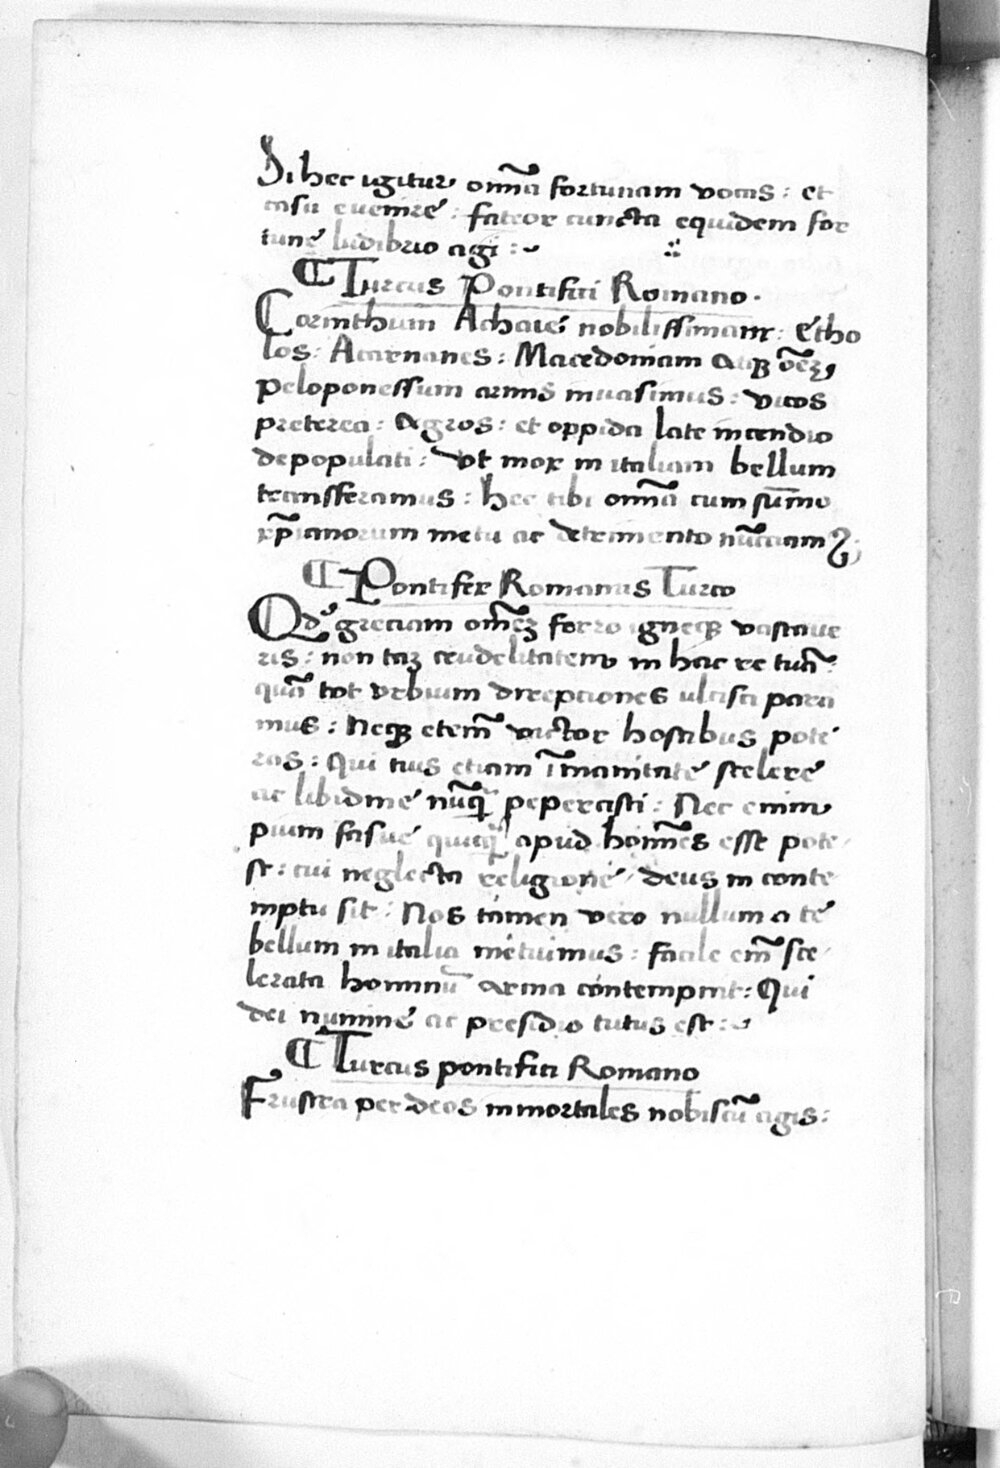 Si hec igitur omĩa fortunam vocas : et
casu euenire : fateor cuncta equidem for
tune ludibrio agi :~
¶ Turcus Pontifici Romano .
Corinthum Achaie nobilissimam : Etho
los : Acarnanes : Macedoniam atqꝫ oẽꝫ
peloponessum armis inuasimus : vicos
preterea : Agros : et oppida late incendio
depopulati : vt mox in italiam bellum
transferamus : hec tibi omĩa cum sum̄o
xp̃ianorum metu ac detrimento nũciamꝰ
¶ Pontifex Romanus Turco
Qđ greciam om̃eꝫ ferro igneqꝫ vastaue
ris : non taꝫ crudelitatem in hac re tuã
quã tot vrbium direptiones vlcisci para
mus : Neqꝫ eteñ victor hostibus pote
ras : Qui tuis etiam ĩmanitate scelere
ac libidine nũqꝫ pepercisti : Nec enim
pium fas ue quicqꝫ apud hom̃es esse pote
st : cui neglecta religione deus in conte
mptu sit : Nos tamen vero nullum a te
bellum in italia metuimus : facile em̃ sce
lerata hominũ arma contempnit : Qui
dei numine ac presidio tutus est :~
¶ Turcus pontifici Romano
Frustra per deos inmortales nobiscũ agis :